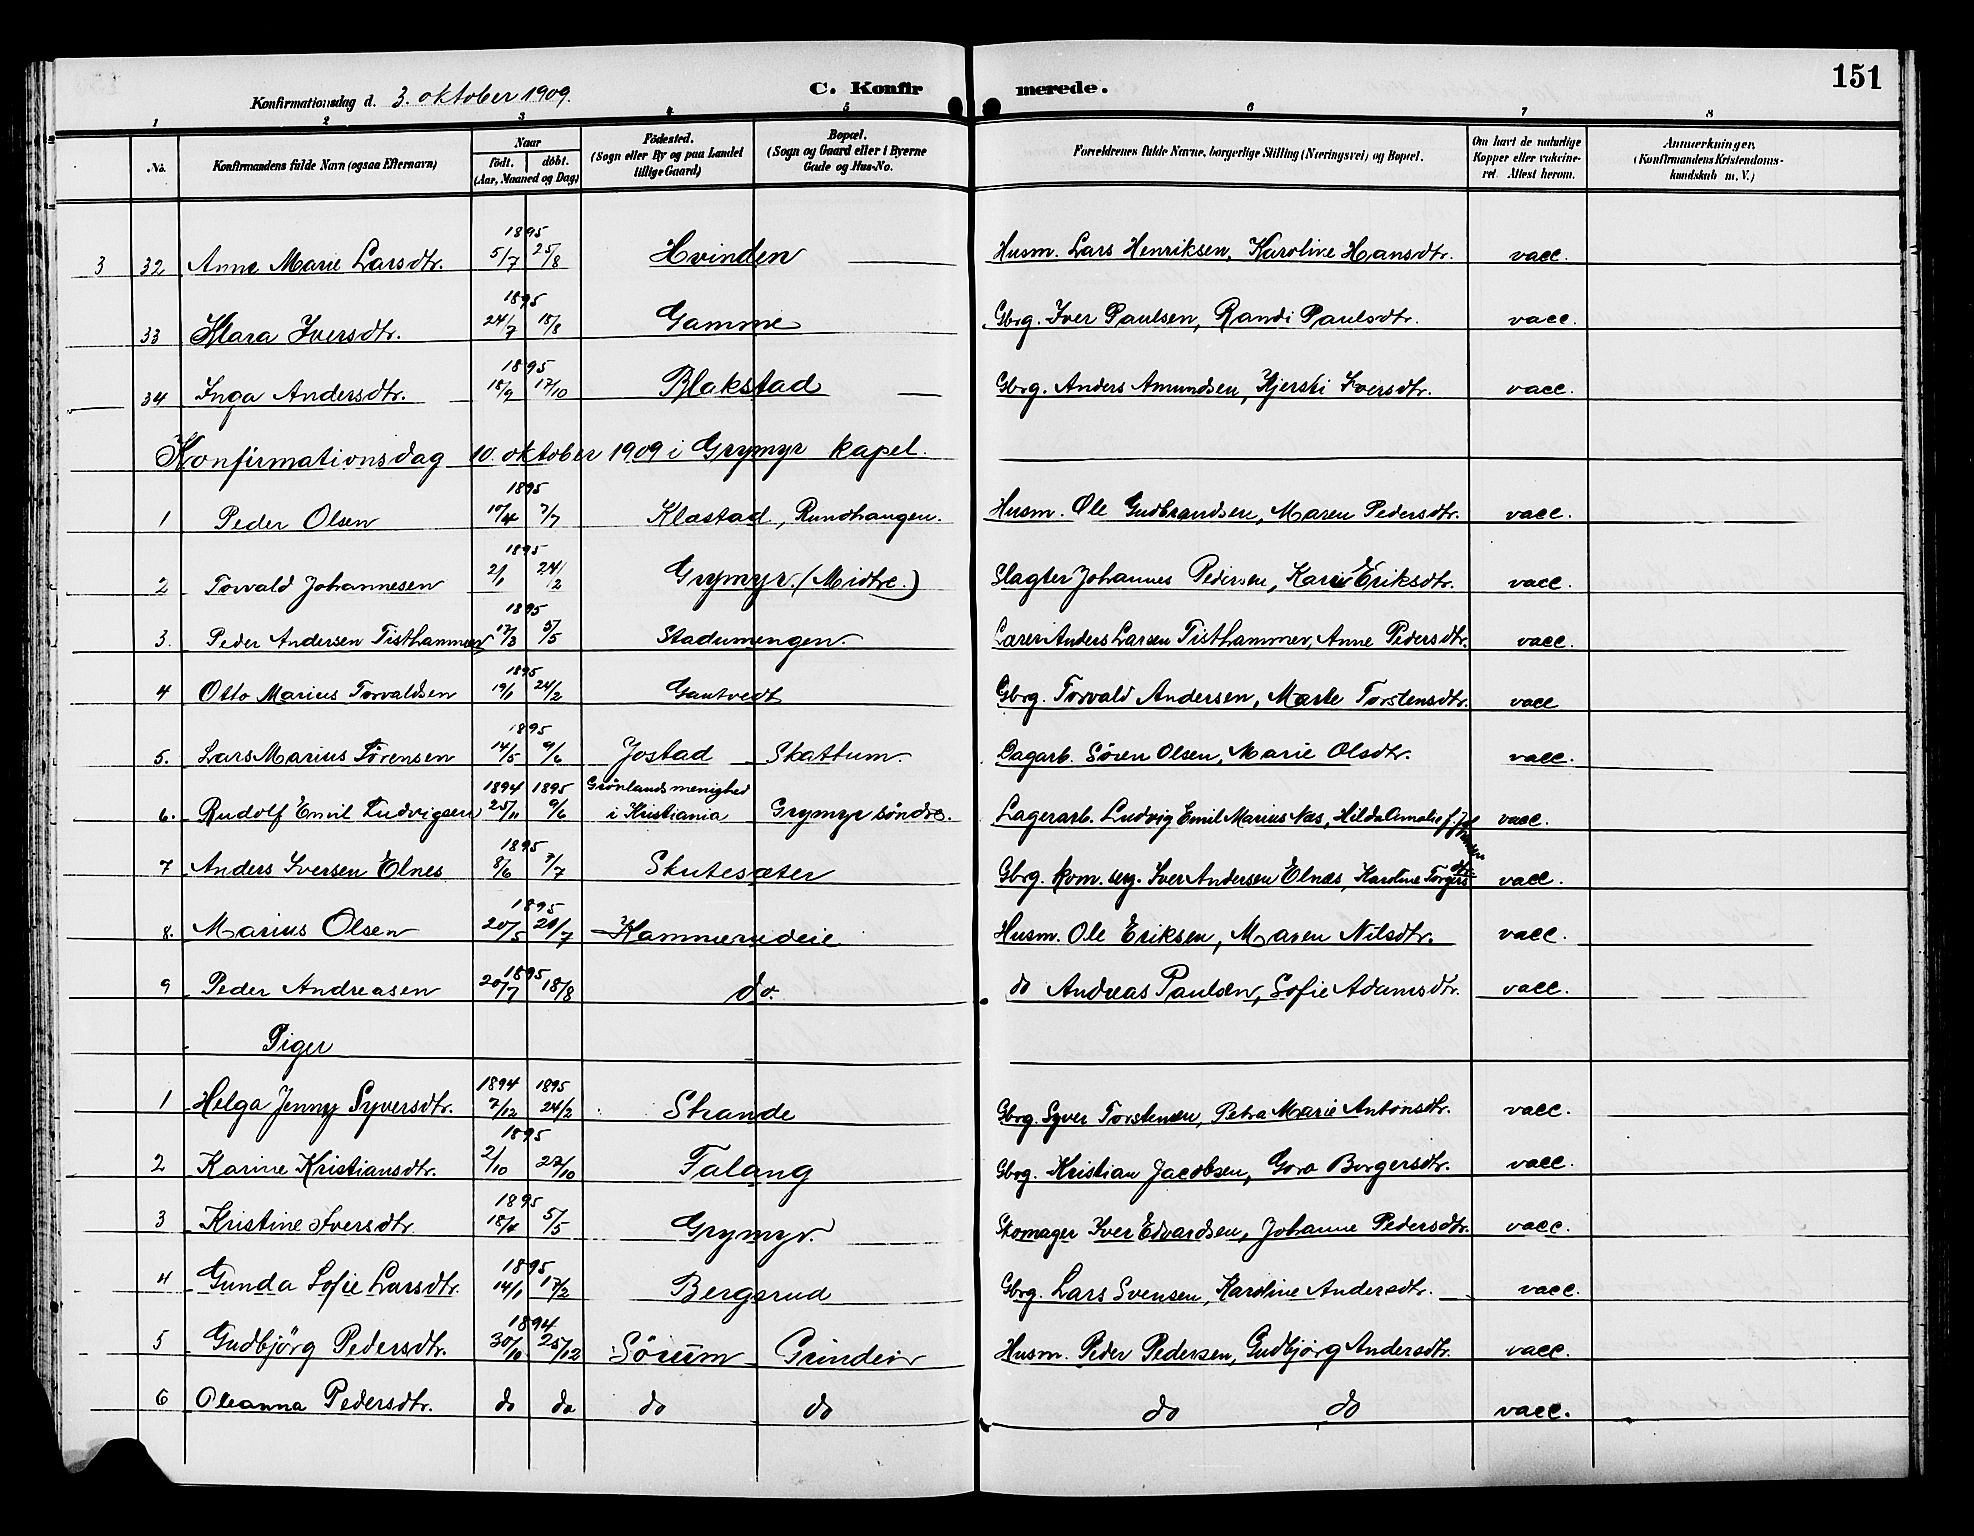 151
Konfirmationsdag d. 3. oktober 1909. C. Konfirmerede.
1 2 3 4 5 6 7 8
No. Konfirmandens fulde Navn (ogsaa Efternavn) Naar født. døbt. (Aar, Maaned og Dag) Fødested. (Sogn eller By og paa Landet tillige Gaard) Bopæl. (Sogn og Gaard eller i Byerne Gade og Hus-No. Forældrenes fulde Navne, borgerlige Stilling (Næringsvei) og Bopæl. Om havt de naturlige Kopper eller vakcineret. Attest herom. Anmerkninger. (Konfirmandens Kristendomskundskab m. V.)
3 32 Anne Marie Larsdtr. 1895 5/7 25/8 Hvinden Husm. Lars Henriksen, Karoline Hansdtr. vacc.
33 Klara Iversdtr. 1895 24/7 18/8 Gamme Gbrg. Iver Paulsen, Randi Paulsdtr. vacc.
34 Inga Andersdtr. 1895 18/9 17/10 Blakstad Gbrg. Anders Amundsen, Kjersti Iversdtr. vacc.
Konfirmationsdag 10. oktober 1909 i Grymyr kapel.
1 Peder Olsen 1895 7/7 Klæstad, Rundhaugen. Husm. Ole Gudbrandsen, Maren Pedersdtr. vacc.
2 Torvald Johannesen 1895 2/1 24/2 Grymyr. (Midtre.) Slagter Johannes Pedersen, Karin Eriksdtr. vacc.
3. Peder Andersen Tisthammer 1895 17/3 5/5 Stadumengen. Lærer Anders Larsen Tisthammer, Anne Pedersdtr. vacc.
4 Otto Marius Torvaldsen 1895 19/1 24/2 Gautvedt Gbrg. Torvald Andersen, Marte Torstensdtr. vacc
5. Lars Marius Sørensen 1895 14/5 9/6 Jostad Skattum. Dagarb. Søren Olsen, Marie Olsdtr. vacc.
6. Rudolf Emil Ludvigsen 1894 25/11 1895 9/6 Grønlands menighed i Kristiania Grymyr søndre. Lagerarb. Ludvig Emil Marius Næs, Hilda Amalie f. vacc.
7 Anders Iversen Elnes 1895 8/6 7/7 Skutesæter Gbrg. kom. Iver Andersen Elnæs, Karoline Torgersdtr. vacc.
8. Marius Olsen 1895 20/5 21/7 Hammerseie Husm. Ole Eriksen, Maren Nilsdtr. vacc.
9 Peder Andreasen 1895 20/7 18/8 do. do Andreas Paulsen, Sofie Adamsdtr. vacc.
Piger
1 Helga Jenny Syversdtr. 1894 7/12 1895 24/2 Strande Gbrg. Syver Torstensen, Petra Marie Antonsdtr. vacc.
2 Karine Kristiansdtr. 1895 2/10 27/10 Falang Gbrg. Kristian Jacobsen, Goro Borgersdtr. vacc.
3 Kristine Iversdtr. 1895 18/4 5/5 Grymyr. Skomager Iver Edvardsen, Johanne Pedersdtr. vacc.
4 Gunda Sofie Larsdtr. 1895 14/1 17/2 Bergsrud Gbrg. Lars Svensen, Karoline Andersdtr. vacc.
5 Gudbjörg Pedersdtr. 1894 30/10 25/12 Sørum Grindeir Husm. Peder Pedersen, Gudbjörg Andersdtr. vacc.
6 Oleanna Pedersdtr. do do do do do do vacc.